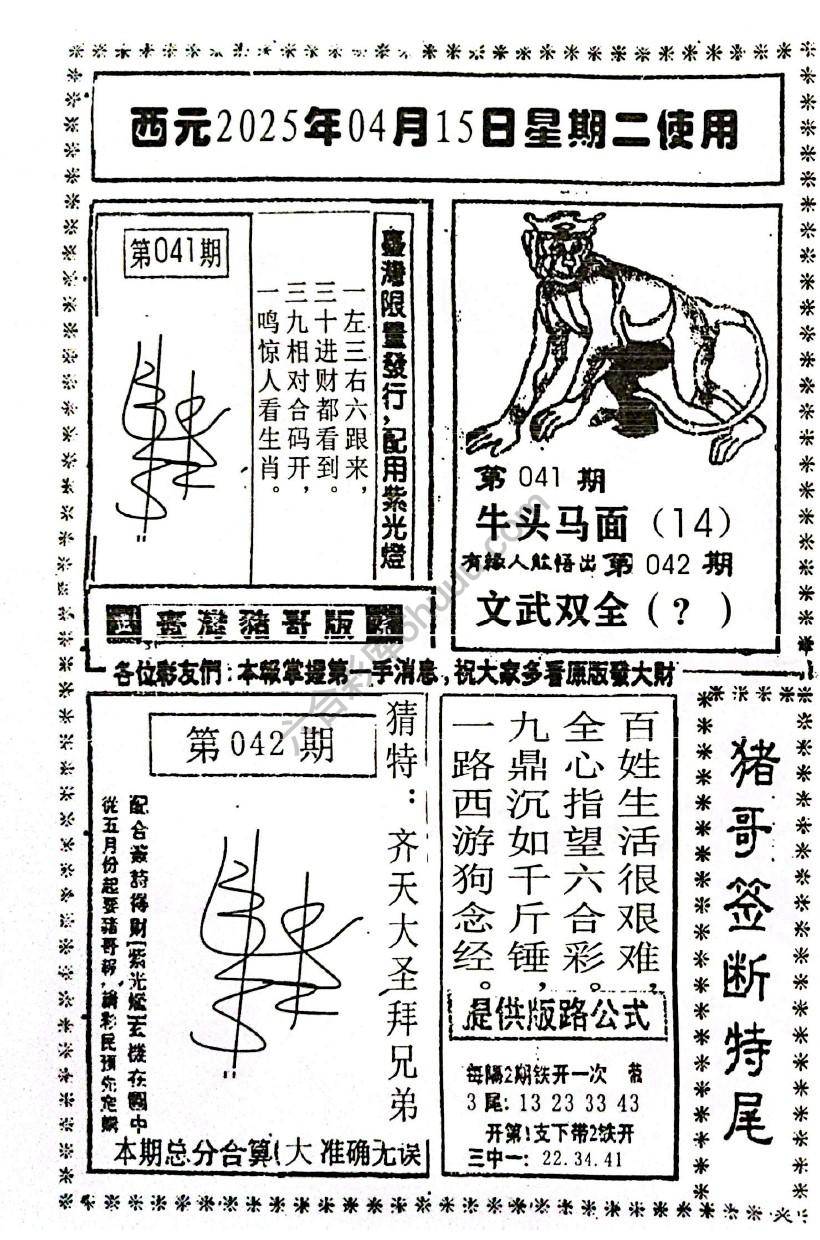 西元2025年04月15日星期二使用
第041期
一左三右六跟来，
三十进财都看到。
三九相对合码开，
一鸣惊人看生肖。
臺灣限量發行，配用紫光燈
第 041 期
牛头马面（14）
有緣人能悟出 第 042 期
文武双全（？）
臺灣豬哥版
各位彩友們：本報掌握第一手消息，祝大家多看原版發大財
第 042 期
猜特：齐天大圣拜兄弟
配合簽詩得財(紫光燈)玄機在圖中
從五月份起要豬哥報，請彩民預先定購
本期总分合算(大 准确无误
百姓生活很艰难，
全心指望六合彩。
九鼎沉如千斤锤，
一路西游狗念经。
提供版路公式
每隔2期铁开一次
3尾: 13 23 33 43
开第1支下带2铁开
三中一: 22.34.41
猪哥签断特尾
六合彩库6huu8.com